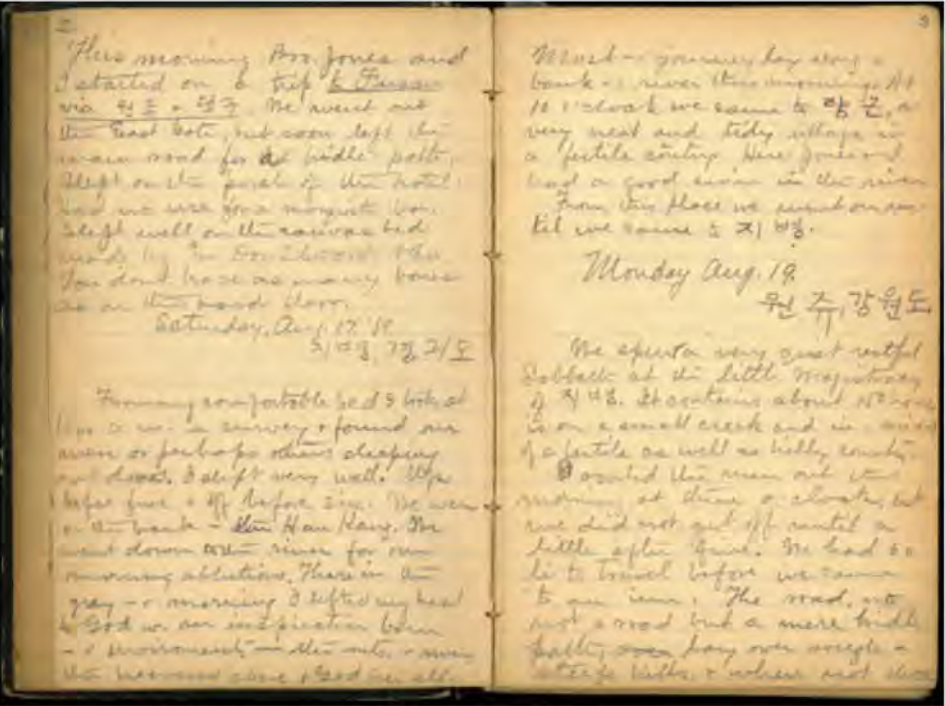 2
This morning Bro. Jones and
I started on a trip to Fusan
via 원주 + 대구. We went out
the East Gate, but soon left the
main road for a bridle path.
Slept on the porch of the hotel.
had we use for a mosquito bar.
Slept well on the canvas bed
made by
You dont have as many bones
as on the hard floor.
Saturday, Aug. 17. '89
지평, 경긔도
From my comfortable bed I took
a survey + found our
men or perhaps others sleeping
out doors. I slept very well. Up
before five + off before six. We were
on the bank - the Han Kang. We
went down to the river for our
morning ablutions. There in the
gray - a morning I lifted my heart
to God in an inspiration born
- a environment - the
the heavens above + God over all.
3
Most - a journey lay along a
bank - a river this morning. At
10 o'clock we came to 양근, a
very neat and tidy village in
a fertile country. Here Jones and I
had a good swim in the river
From this place we went on un-
til we came to 지평.
Monday Aug. 19.
원쥬, 강원도
We spent a very quiet restful
Sabbath at the little Magistracy
of 지평. It contains about 150 houses
is on a small creek and in a midst
of a fertile as well as hilly country.
I called the men out this
morning at three o'clock, but
we did not get off until a
little after five. We had 60
li to travel before we came
to our inn. The road, no
not a road but a mere bridle
path, lay over
steep hills, + where not